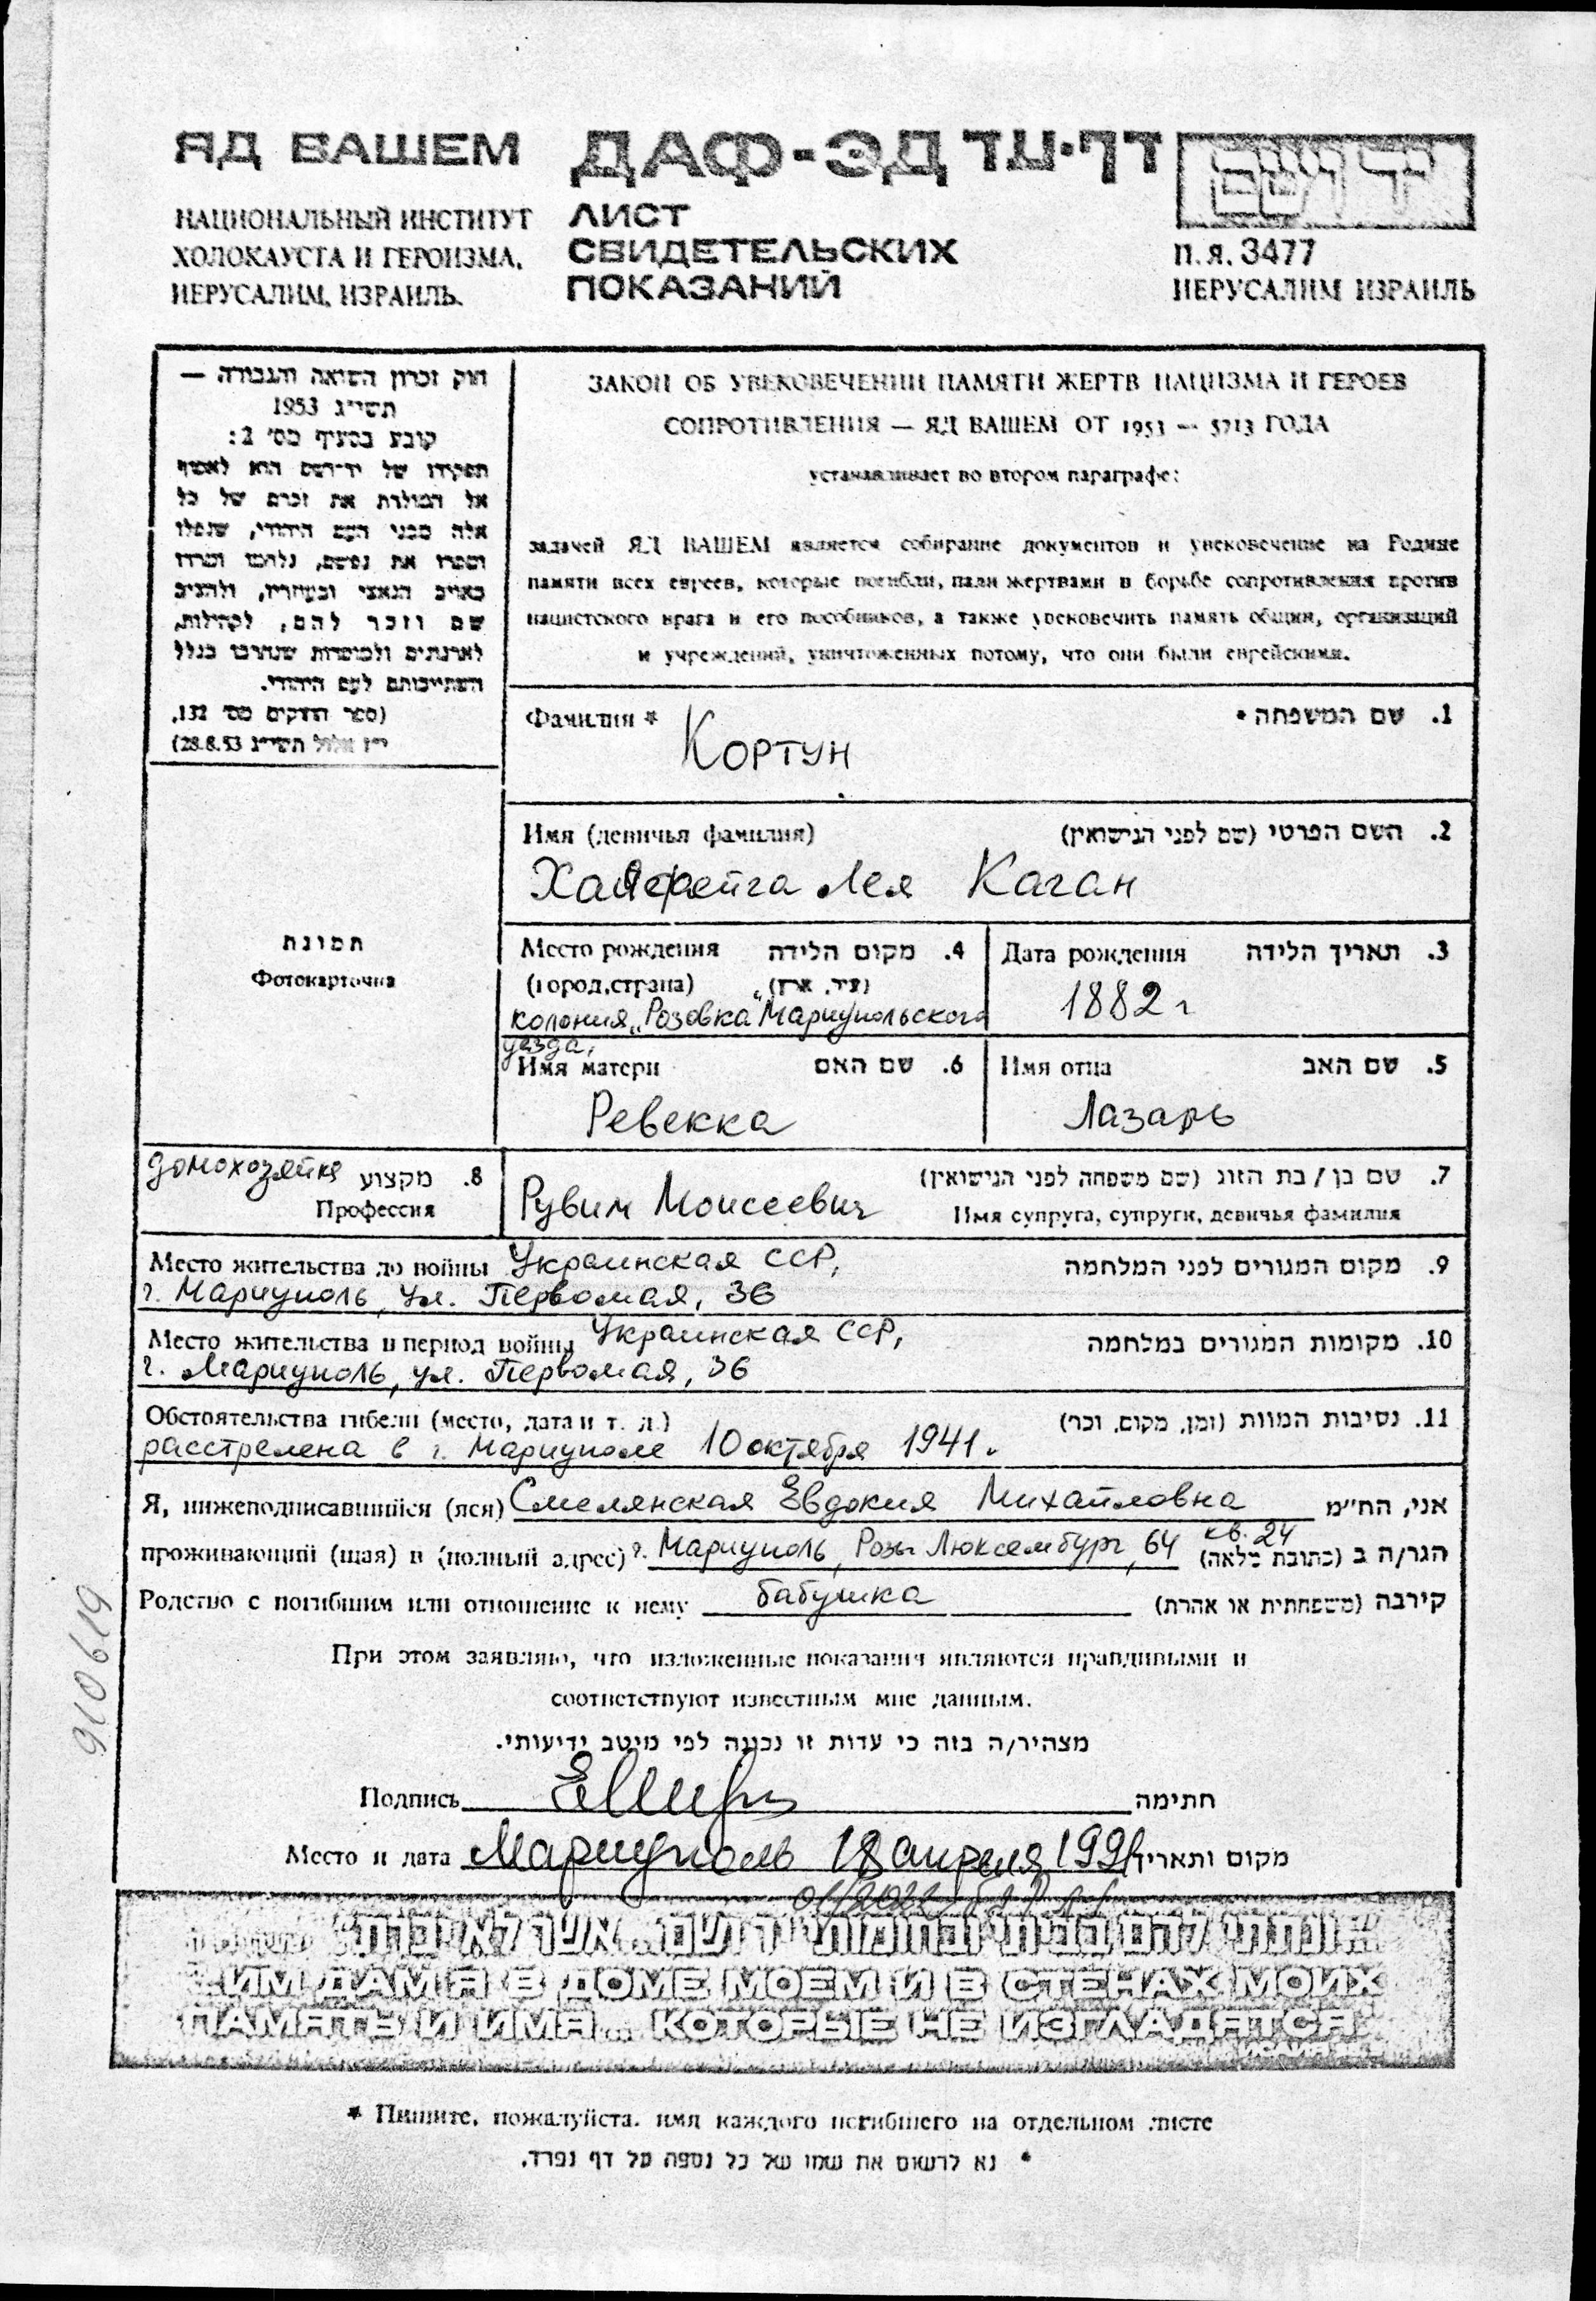 ЯД ВАШЕМ ДАФ-ЭД דף-עד
יד ושם
НАЦИОНАЛЬНЫЙ ИНСТИТУТ
ХОЛОКАУСТА И ГЕРОИЗМА.
ИЕРУСАЛИМ, ИЗРАИЛЬ.
ЛИСТ
СВИДЕТЕЛЬСКИХ
ПОКАЗАНИЙ
П.Я. 3477
ИЕРУСАЛИМ ИЗРАИЛЬ
חוק זכרון השואה והגבורה —
תשי״ג 1953
קובע בסעיף מס׳ 2:
תפקידו של יד-ושם הוא לאסוף
אל המולדת את זכרם של כל
אלה מבני העם היהודי, שנפלו
ומסרו את נפשם, נלחמו ומרדו
באויב הנאצי ובעוזריו, ולהציב
שם וזכר להם, לקהילות,
לארגונים ולמוסדות שנחרבו בגלל
השתייכותם לעם היהודי.
(ספר החוקים מס׳ 132,
י״ז אלול תשי״ג 28.8.53)
ЗАКОН ОБ УВЕКОВЕЧЕНИИ ПАМЯТИ ЖЕРТВ НАЦИЗМА И ГЕРОЕВ
СОПРОТИВЛЕНИЯ — ЯД ВАШЕМ ОТ 1953 — 5713 ГОДА
устанавливает во втором параграфе:
задачей ЯД ВАШЕМ является собирание документов и увековечение на Родине
памяти всех евреев, которые погибли, пали жертвами в борьбе сопротивления против
нацистского врага и его пособников, а также увековечить память общин, организаций
и учреждений, уничтоженных потому, что они были еврейскими.
Фамилия * 1. שם המשפחה *
Кортун
Имя (девичья фамилия) 2. השם הפרטי (שם לפני הנישואין)
Хая фейга Лея Каган
תמונת
Фотокарточка
Место рождения 4. מקום הלידה
(город, страна) (עיר, ארץ)
колония „Розовка" Мариупольского
уезда,
Дата рождения 3. תאריך הלידה
1882 г
Имя матери 6. שם האם
Ревекка
Имя отца 5. שם האב
Лазарь
домохозяйка 8. מקצוע
Профессия
Рувим Моисеевич 7. שם בן / בת הזוג (שם משפחה לפני הנישואין)
Имя супруга, супруги, девичья фамилия
Место жительства до войны Украинская ССР, 9. מקום המגורים לפני המלחמה
г. Мариуполь, ул. Первомая, 36
Место жительства в период войны Украинская ССР, 10. מקומות המגורים במלחמה
г. Мариуполь, ул. Первомая, 36
Обстоятельства гибели (место, дата и т. д.) 11. נסיבות המוות (זמן, מקום, וכו׳)
расстрелена в г. Мариуполе 10 октября 1941.
Я, нижеподписавшийся (яся) Смелянская Евдокия Михайловна אני, הח״מ
проживающий (щая) в (полный адрес) г. Мариуполь, Розы Люксембург, 64 кв. 24 הגר/ה ב (כתובת מלאה)
Родство с погибшим или отношение к нему бабушка קירבה (משפחתית או אחרת)
При этом заявляю, что изложенные показания являются правдивыми и
соответствуют известным мне данным.
מצהיר/ה בזה כי עדות זו נכונה לפי מיטב ידיעותי.
Подпись חתימה
Место и дата Мариуполь 18 апреля 1991 מקום ותאריך
910619
"...ונתתי להם בביתי ובחומותי יד ושם... אשר לא יכרת"
"...ИМ ДАМ Я В ДОМЕ МОЕМ И В СТЕНАХ МОИХ
ПАМЯТЬ И ИМЯ... КОТОРЫЕ НЕ ИЗГЛАДЯТСЯ"
* Пишите, пожалуйста, имя каждого погибшего на отдельном листе
* נא לרשום את שמו של כל נספה על דף נפרד.